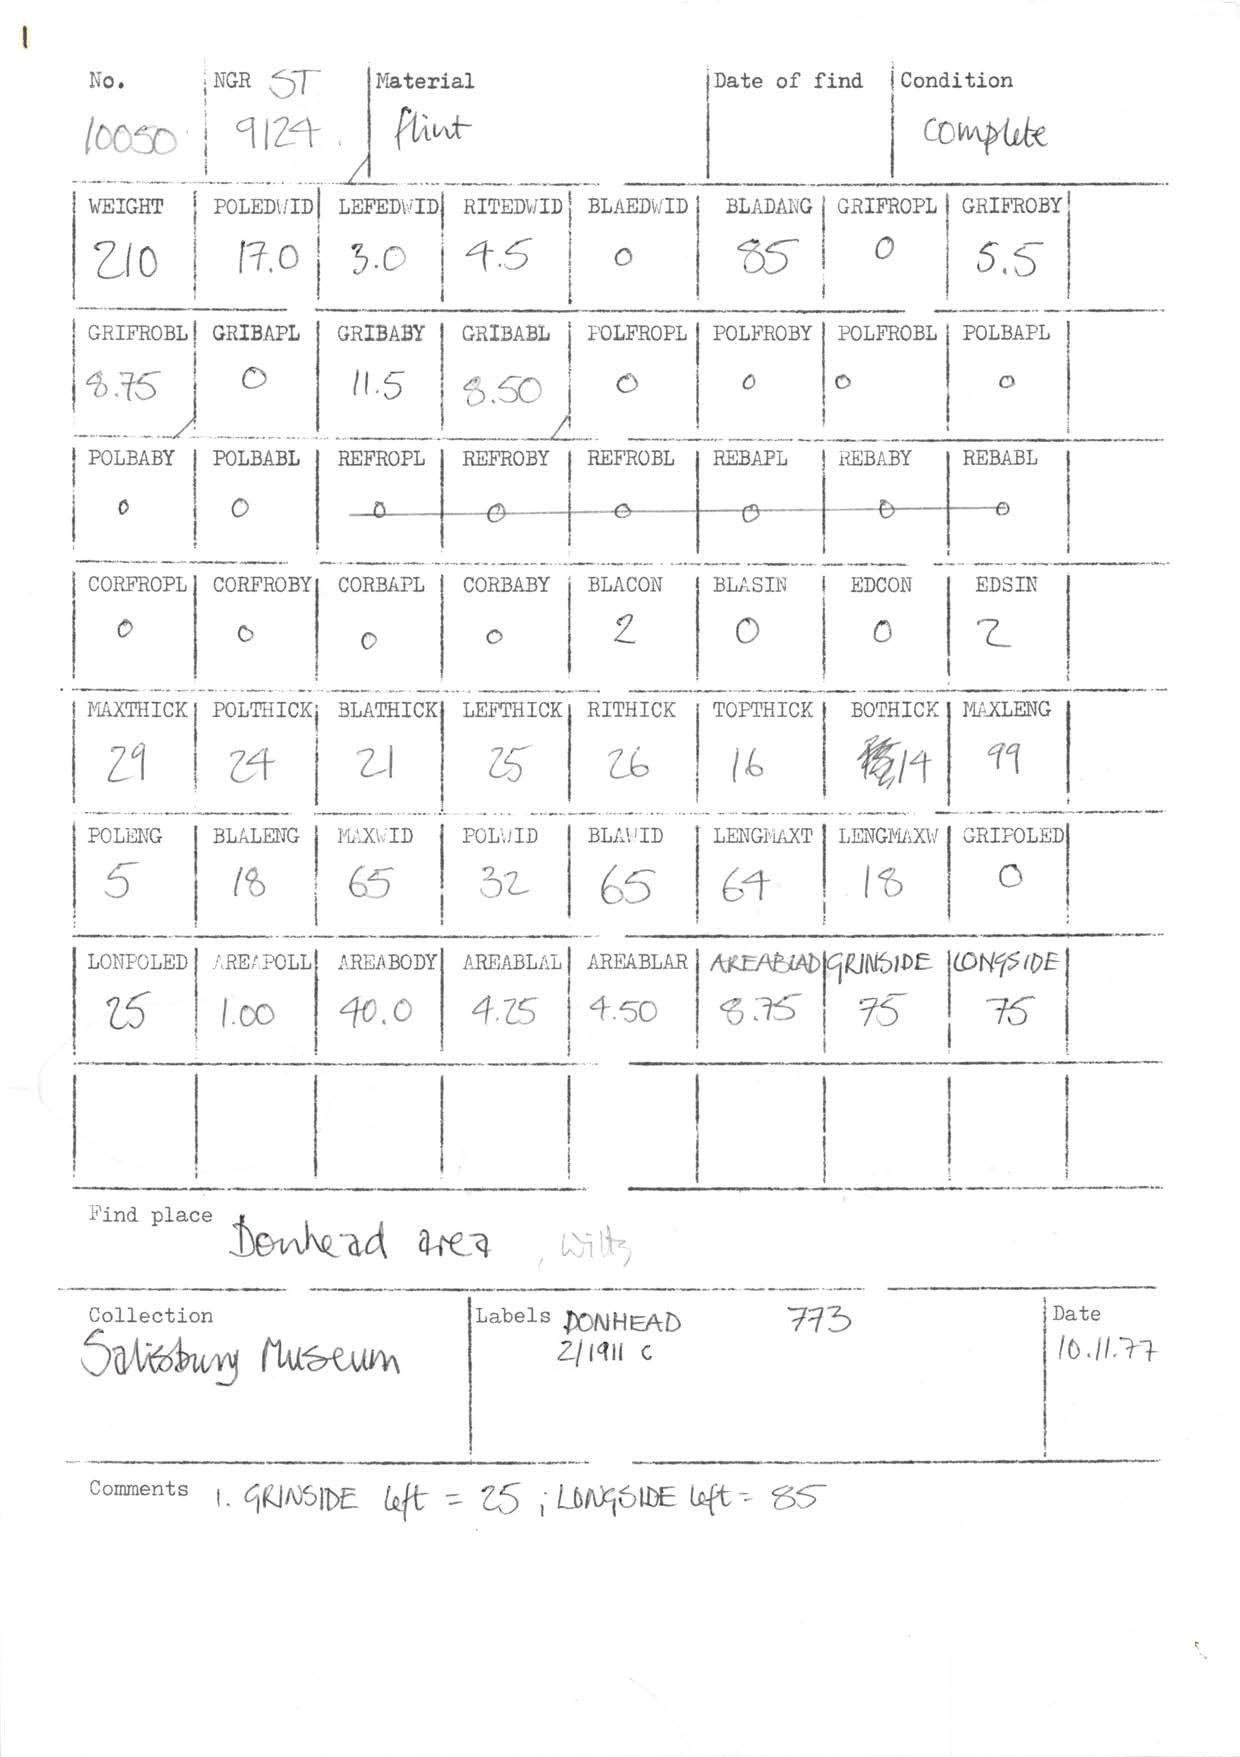 1
No. NGR ST Material Date of find Condition
10050 9124. flint complete
WEIGHT POLEDWID LEFEDWID RITEDWID BLAEDWID BLADANG GRIFROPL GRIFROBY
210 17.0 3.0 4.5 0 85 0 5.5
GRIFROBL GRIBAPL GRIBABY GRIBABL POLFROPL POLFROBY POLFROBL POLBAPL
8.75 0 11.5 8.50 0 0 0 0
POLBABY POLBABL REFROPL REFROBY REFROBL REBAPL REBABY REBABL
0 0 0 0 0 0 0 0
CORFROPL CORFROBY CORBAPL CORBABY BLACON BLASIN EDCON EDSIN
0 0 0 0 2 0 0 2
MAXTHICK POLTHICK BLATHICK LEFTHICK RITHICK TOPTHICK BOTHICK MAXLENG
29 24 21 25 26 16 14 99
POLENG BLALENG MAXWID POLWID BLAWID LENGMAXT LENGMAXW GRIPOLED
5 18 65 32 65 64 18 0
LONPOLED AREAPOLL AREABODY AREABLAL AREABLAR AREABLAD GRINSIDE LONGSIDE
25 1.00 40.0 4.25 4.50 8.75 75 75
Find place Donhead area, Wilts
Collection Labels DONHEAD 773 Date
Salisbury Museum 2/1911 c 10.11.77
Comments 1. GRINSIDE left = 25 ; LONGSIDE left = 85